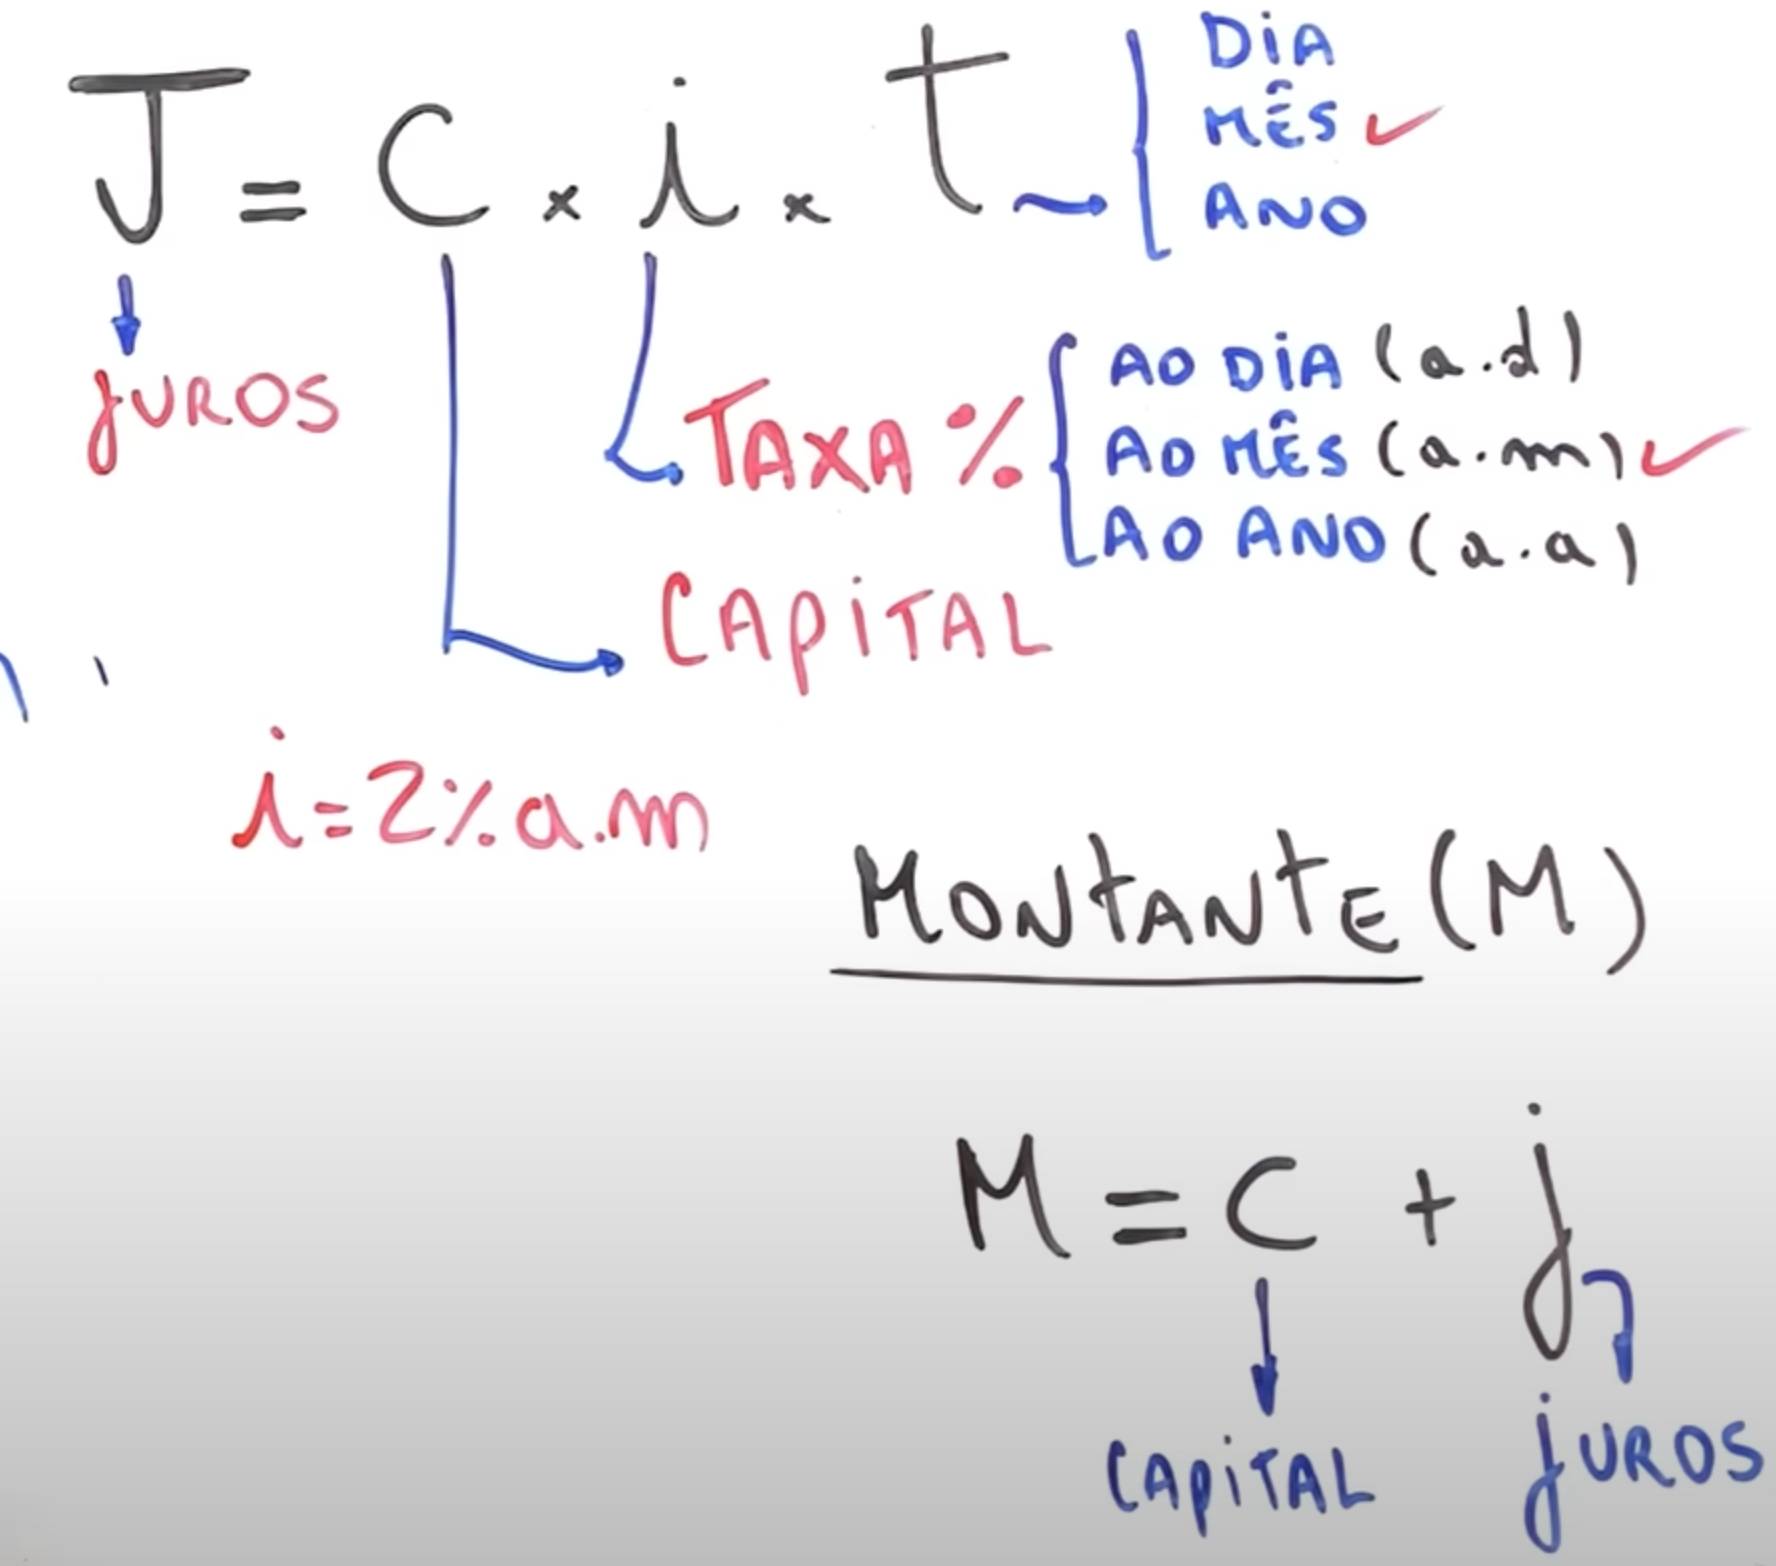 J = C × i × t
DiA
MÊS
ANO
jUROS
TAXA %
AO DiA (a.d)
AO MÊS (a.m)
AO ANO (a.a)
CApiTAL
i = 2% a.m
MONtANtE (M)
M = C + j
CApiTAL
jUROS